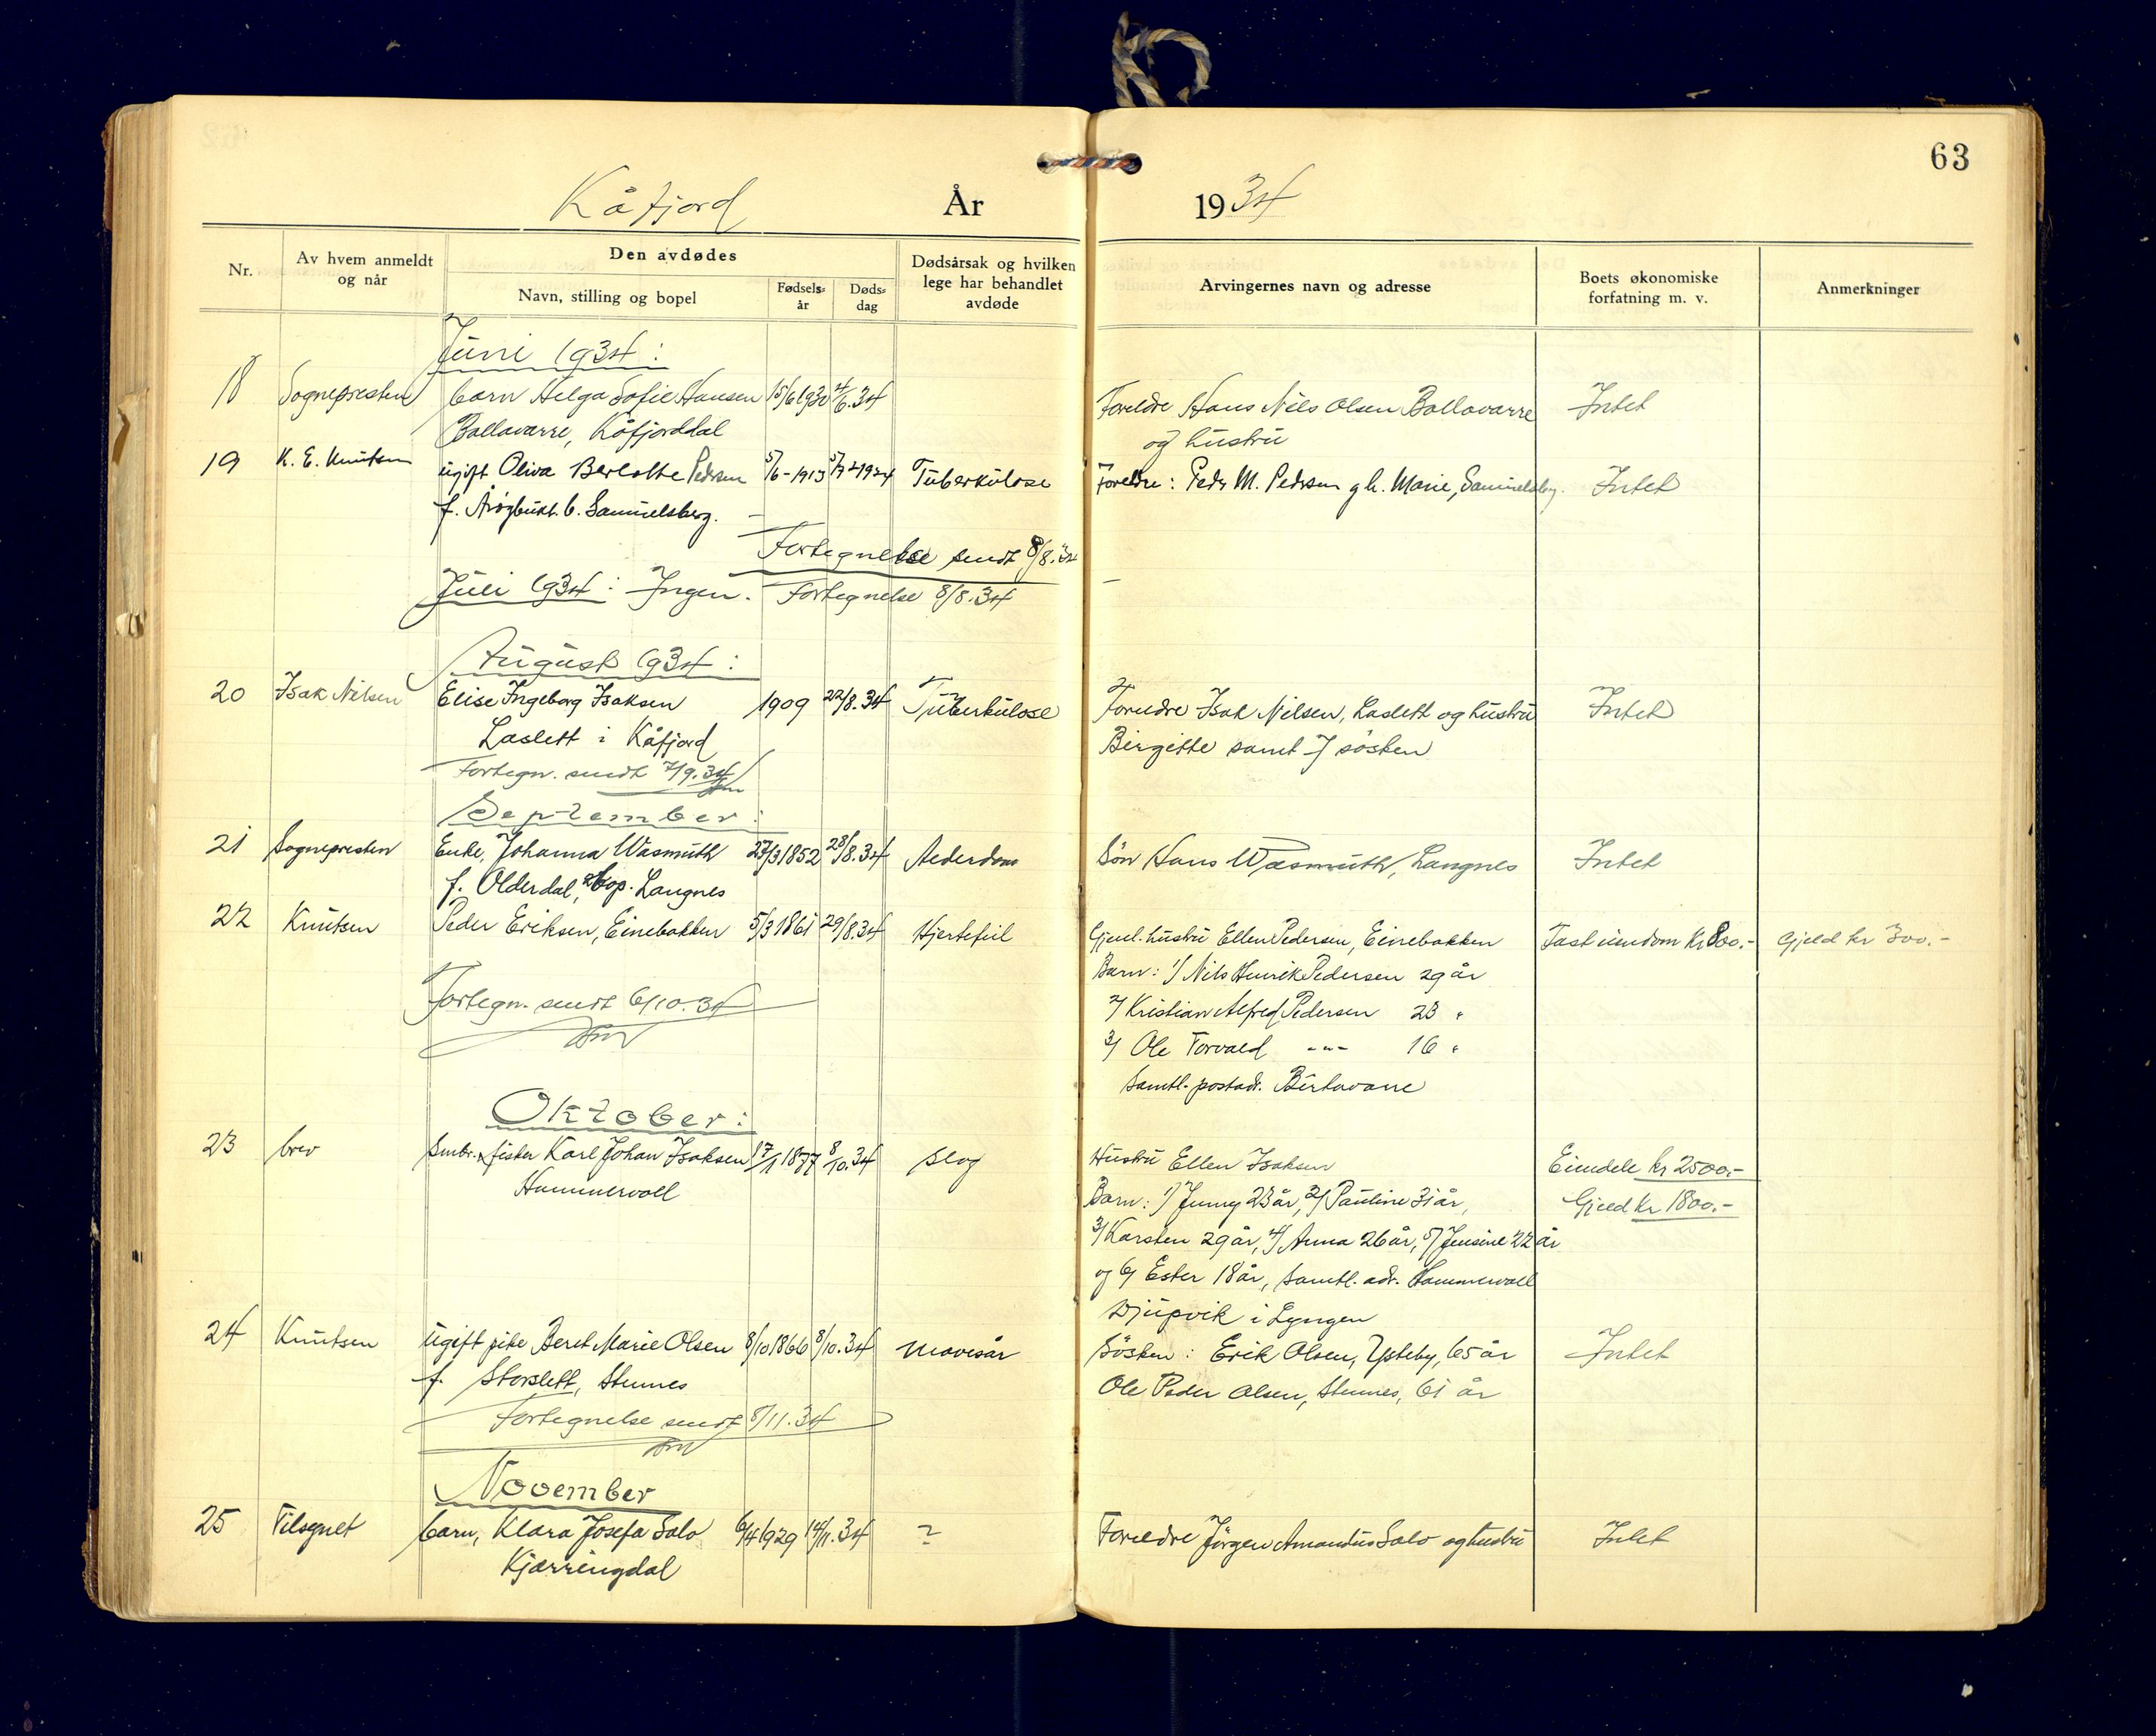 63
Kåfjord År 1934
Nr. Av hvem anmeldt og når Den avdødes Navn, stilling og bopel Fødsels-år Døds-dag Dødsårsak og hvilken lege har behandlet avdøde Arvingernes navn og adresse Boets økonomiske forfatning m. v. Anmerkninger
Juni 1934:
18 Sognepresten barn Helga Sofie Hansen 15/6 1930 4/6.34 Foreldre Hans Nils Olsen Ballavarre Intet
Ballavarre, Kåfjorddal og hustru
19 K. E. Knutsen ugift Oliva Berlotte Pedersen 5/6-1913 1934 Tuberkulose Foreldre: Peder M. Pedersen g h. Marie, Samuelsbg. Intet
f. Årøybukt. b. Samuelsberg.
Fortegnelse sendt 8/8.34
Juli 1934: Ingen. Fortegnelse 8/8.34
August 1934:
20 Isak Nilsen Elise Ingeborg Isaksen 1909 22/8.34 Tuberkulose Foreldre Isak Nilsen, Laslett og hustru Intet
Laslett i Kåfjord Birgitte samt 7 søsken
Fortegn. sendt 7/9.34
September:
21 Sognepresten Enke, Johanna Wasmuth 27/3 1852 28/8.34 Alderdom Søn Hans Wasmuth, Langnes Intet
f. Olderdal, bop. Langnes
22 Knutsen Peder Eriksen, Einebakken 5/3 1861 29/8.34 Hjertefeil Gjenl. hustru Ellen Pedersen, Einebakken Fast eiendom Kr 800.- Gjeld kr 300.-
Barn: 1/ Nils Henrik Pedersen 29 år
2/ Kristian Alfred Pedersen 23 "
Fortegn. sendt 6/10.34
3/ Ole Torvald -"- 16 "
Samtl. postadr. Birtavarre
Oktober:
23 brev Smbr. fisker Karl Johan Isaksen 17/1 1877 8/10.34 slag Hustru Ellen Isaksen Eiendele kr 2500.-
Hammervoll Barn: 1/ Jenny 23 år, 2/ Pauline 31 år, Gjeld kr 1800.-
3/ Karsten 29 år, 4/ Anna 26 år, 5/ Jensine 22 år
og 6/ Ester 18 år, samtl. adr. Hammervoll
Djupvik i Lyngen
24 Knutsen ugift pike Beret Marie Olsen 8/10 1866 8/10.34 Mavesår Søsken: Erik Olsen, Ysteby, 65 år Intet
f. Storslett, Stennes Ole Peder Olsen, Stennes, 61 år
Fortegnelse sendt 8/11.34
November
25 Tilsynet barn, Klara Josefa Salo 6/4 1929 14/11.34 ? Foreldre Jørgen Amandus Salo og hustru Intet
Kjærringdal